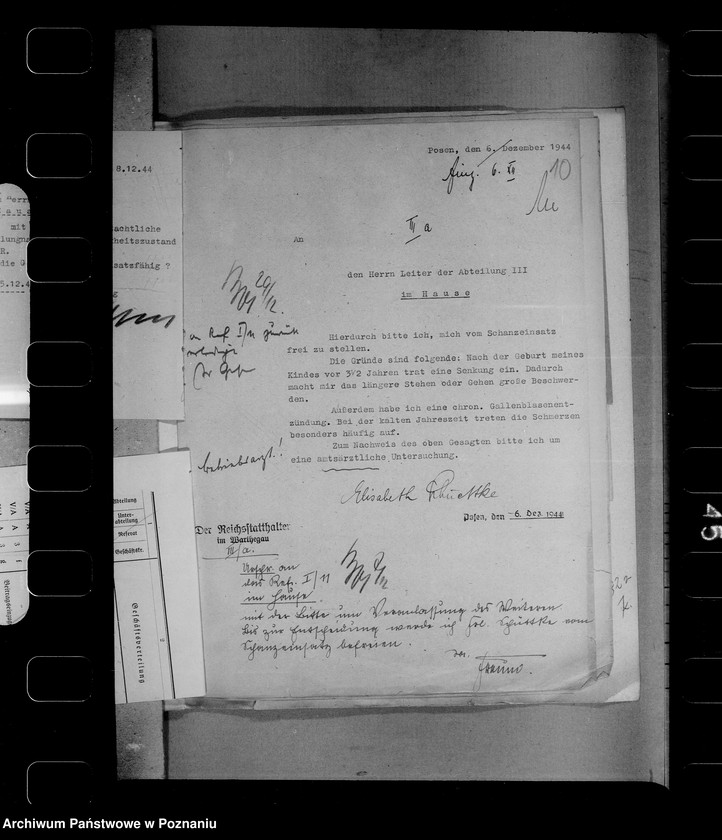 Posen, den 6. Dezember 1944
6. XII
10
III a
An
den Herrn Leiter der Abteilung III
im Hause
20/12.
Ref. I/11 zurück
Hierdurch bitte ich, mich vom Schanzeinsatz
frei zu stellen.
Die Gründe sind folgende: Nach der Geburt meines
Kindes vor 3½ Jahren trat eine Senkung ein. Dadurch
macht mir das längere Stehen oder Gehen große Beschwer-
den.
Außerdem habe ich eine chron. Gallenblasenent-
zündung. Bei der kalten Jahreszeit treten die Schmerzen
besonders häufig auf.
Zum Nachweis des oben Gesagten bitte ich um
eine amtsärztliche Untersuchung.
Betriebsarzt!
Elisabeth
Der Reichsstatthalter
im Warthegau
III/a.
Posen, den -6. Dez. 1944
Urschr. an
das Ref. I/11
im Hause
mit der Bitte um Veranlassung des Weiteren.
Bis zur Entscheidung werde ich Frl. Schuttke vom
Schanzeinsatz befreien.
8.12.44
achtliche
heitszustand
satzfähig ?
mit
lungn
R.
die G
5.12.4
Abteilung
Unter-
abteilung
Referat
Geschäftsz.
Geschäftsverteilung
45
Archiwum Państwowe w Poznaniu